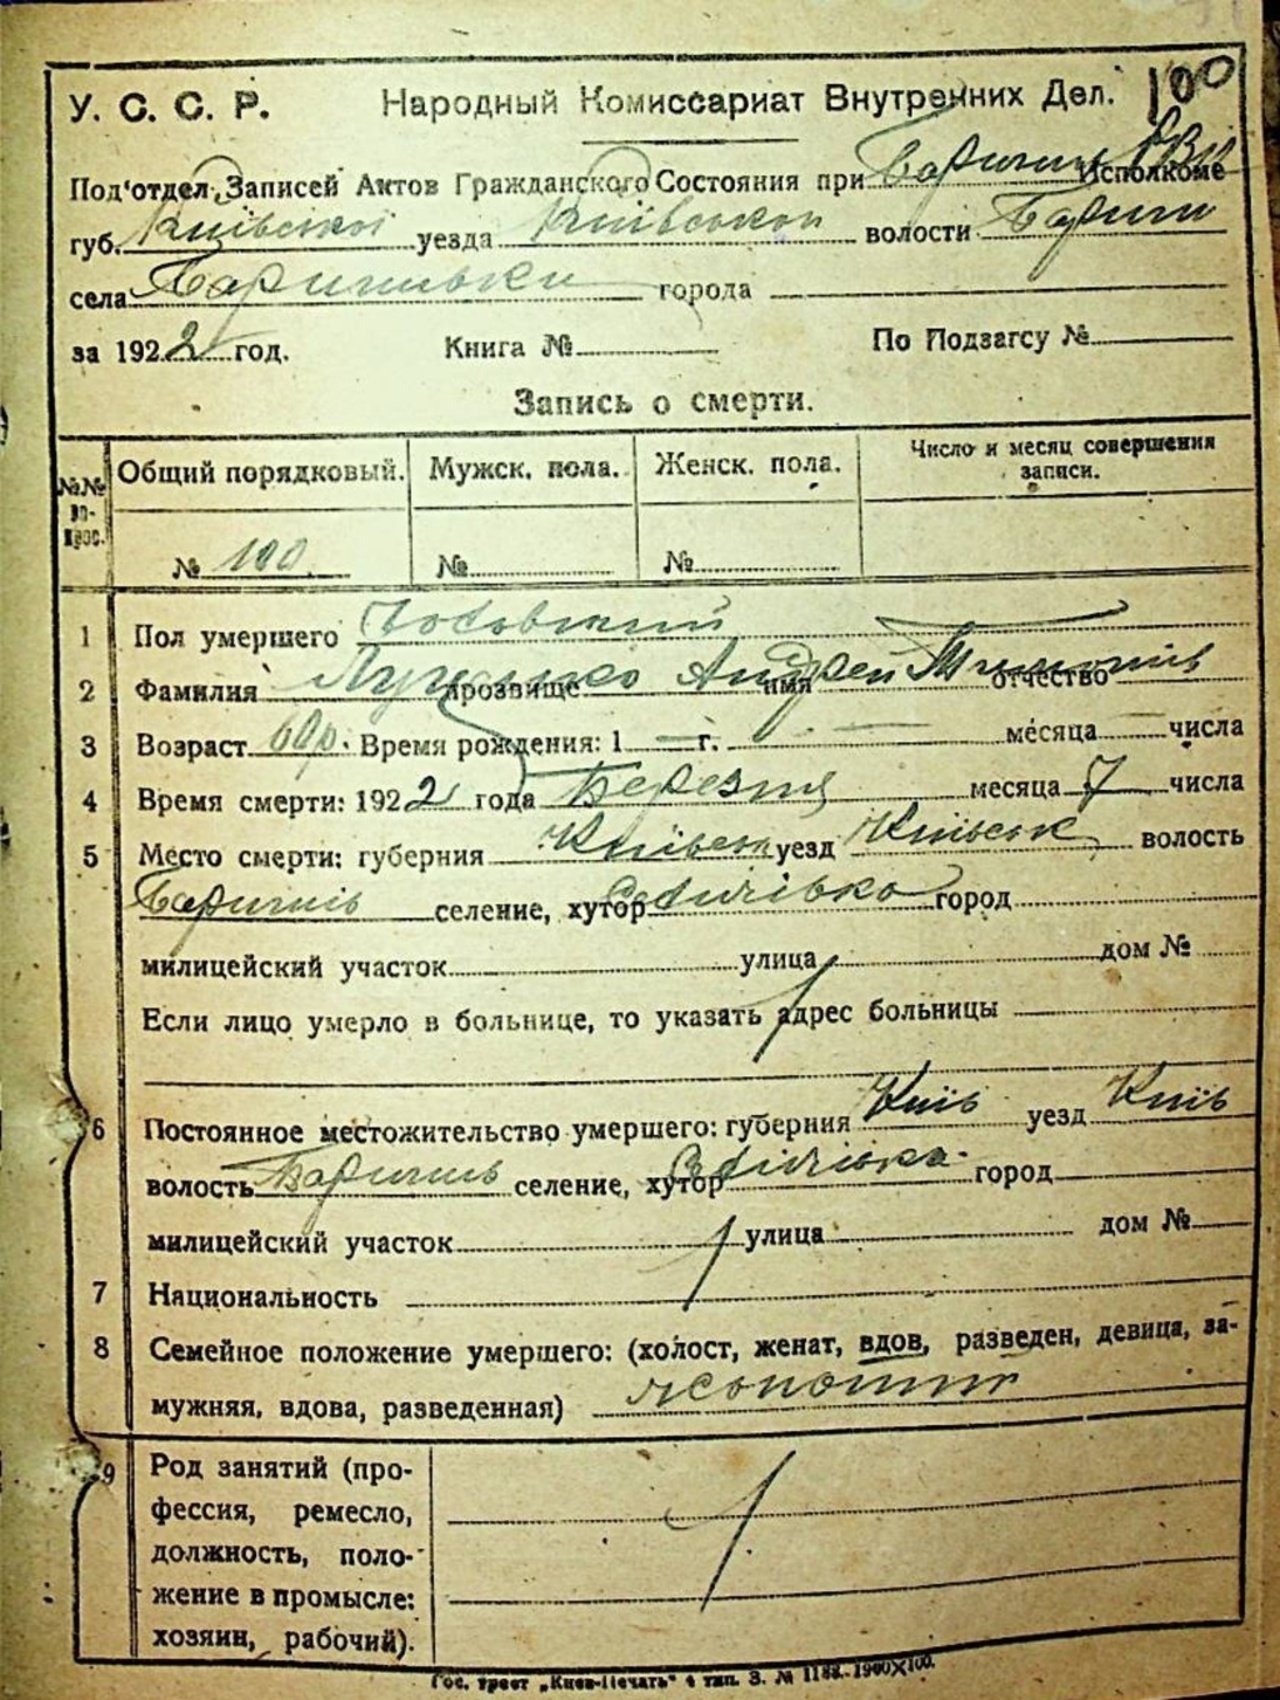 100
У. С. С. Р. Народный Комиссариат Внутренних Дел.
Под'отдел Записей Актов Гражданского Состояния при Баришів РВИ Исполкоме
губ. Київської уезда Київської волости Бариш
села Баришівки города
за 1922 год. Книга № По Подзагсу №
Запись о смерти.
№№ во-прос. Общий порядковый. Мужск. пола. Женск. пола. Число и месяц совершения записи.
№ 100 № №
1 Пол умершего Чоловічий
2 Фамилия прозвище Андрей имя отчество
3 Возраст 60 р. Время рождения: 1 — г. — месяца — числа
4 Время смерти: 1922 года Березня месяца 7 числа
5 Место смерти: губерния Київськ уезд Київськ волость
Баришів селение, хутор город
милицейский участок улица дом №
Если лицо умерло в больнице, то указать адрес больницы
6 Постоянное местожительство умершего: губерния Київ уезд Київ
волость Баришів селение, хутор город
милицейский участок улица дом №
7 Национальность
8 Семейное положение умершего: (холост, женат, вдов, разведен, девица, за-
мужняя, вдова, разведенная)
9 Род занятий (про-
фессия, ремесло,
должность, поло-
жение в промысле:
хозяин, рабочий).
Гос. трест „Киев-Печать“ 4 тип. З. № 1188—1900X100.